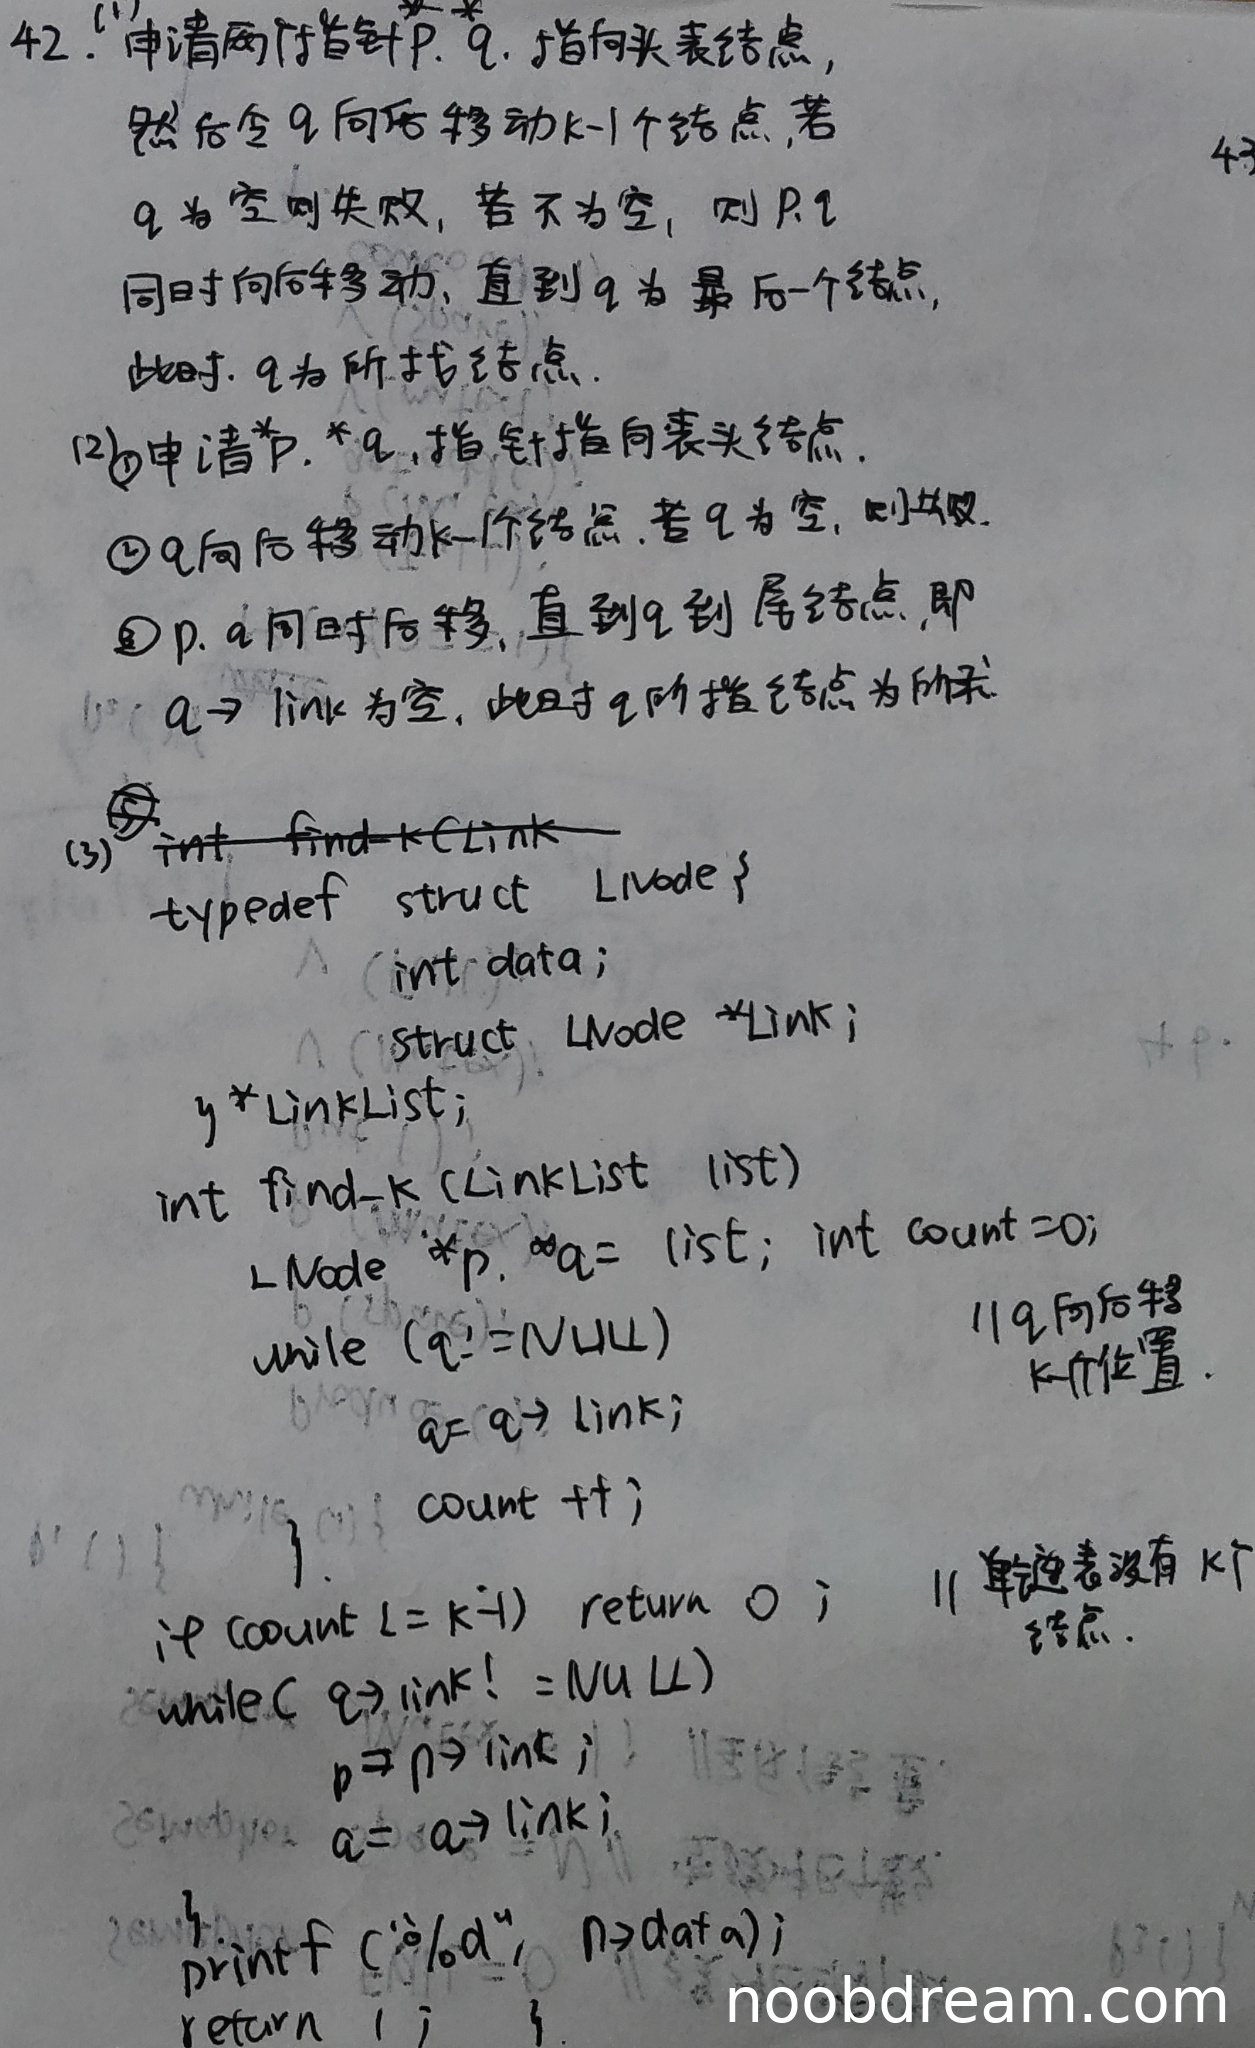 42. (1) 申请两个指针*p. *q. 指向头表结点,
然后令q向后移动k-1个结点,若
43
q为空则失败,若不为空,则p.q
同时向后移动,直到q为最后一个结点,
此时.q为所找结点.
(2)①申请*p.*q,指针指向表头结点.
②q向后移动k-1个结点.若q为空,则失败.
③p.q同时后移,直到q到尾结点,即
q→link为空,此时q所指结点为所求
(3) int find_k(Link
typedef struct LNode{
int data;
struct LNode *Link;
}*LinkList;
int find_k(LinkList list)
LNode *p. *q= list; int count=0;
while (q!=NULL) //q向后移
k-1个位置.
q= q→link;
count ++;
}.
if (count <= k-1) return 0; //单链表没有k个
结点.
while( q→link! =NULL)
p=p→link;
q= q→link;
}
printf("%d", p→data);
return 1; }.
noobdream.com